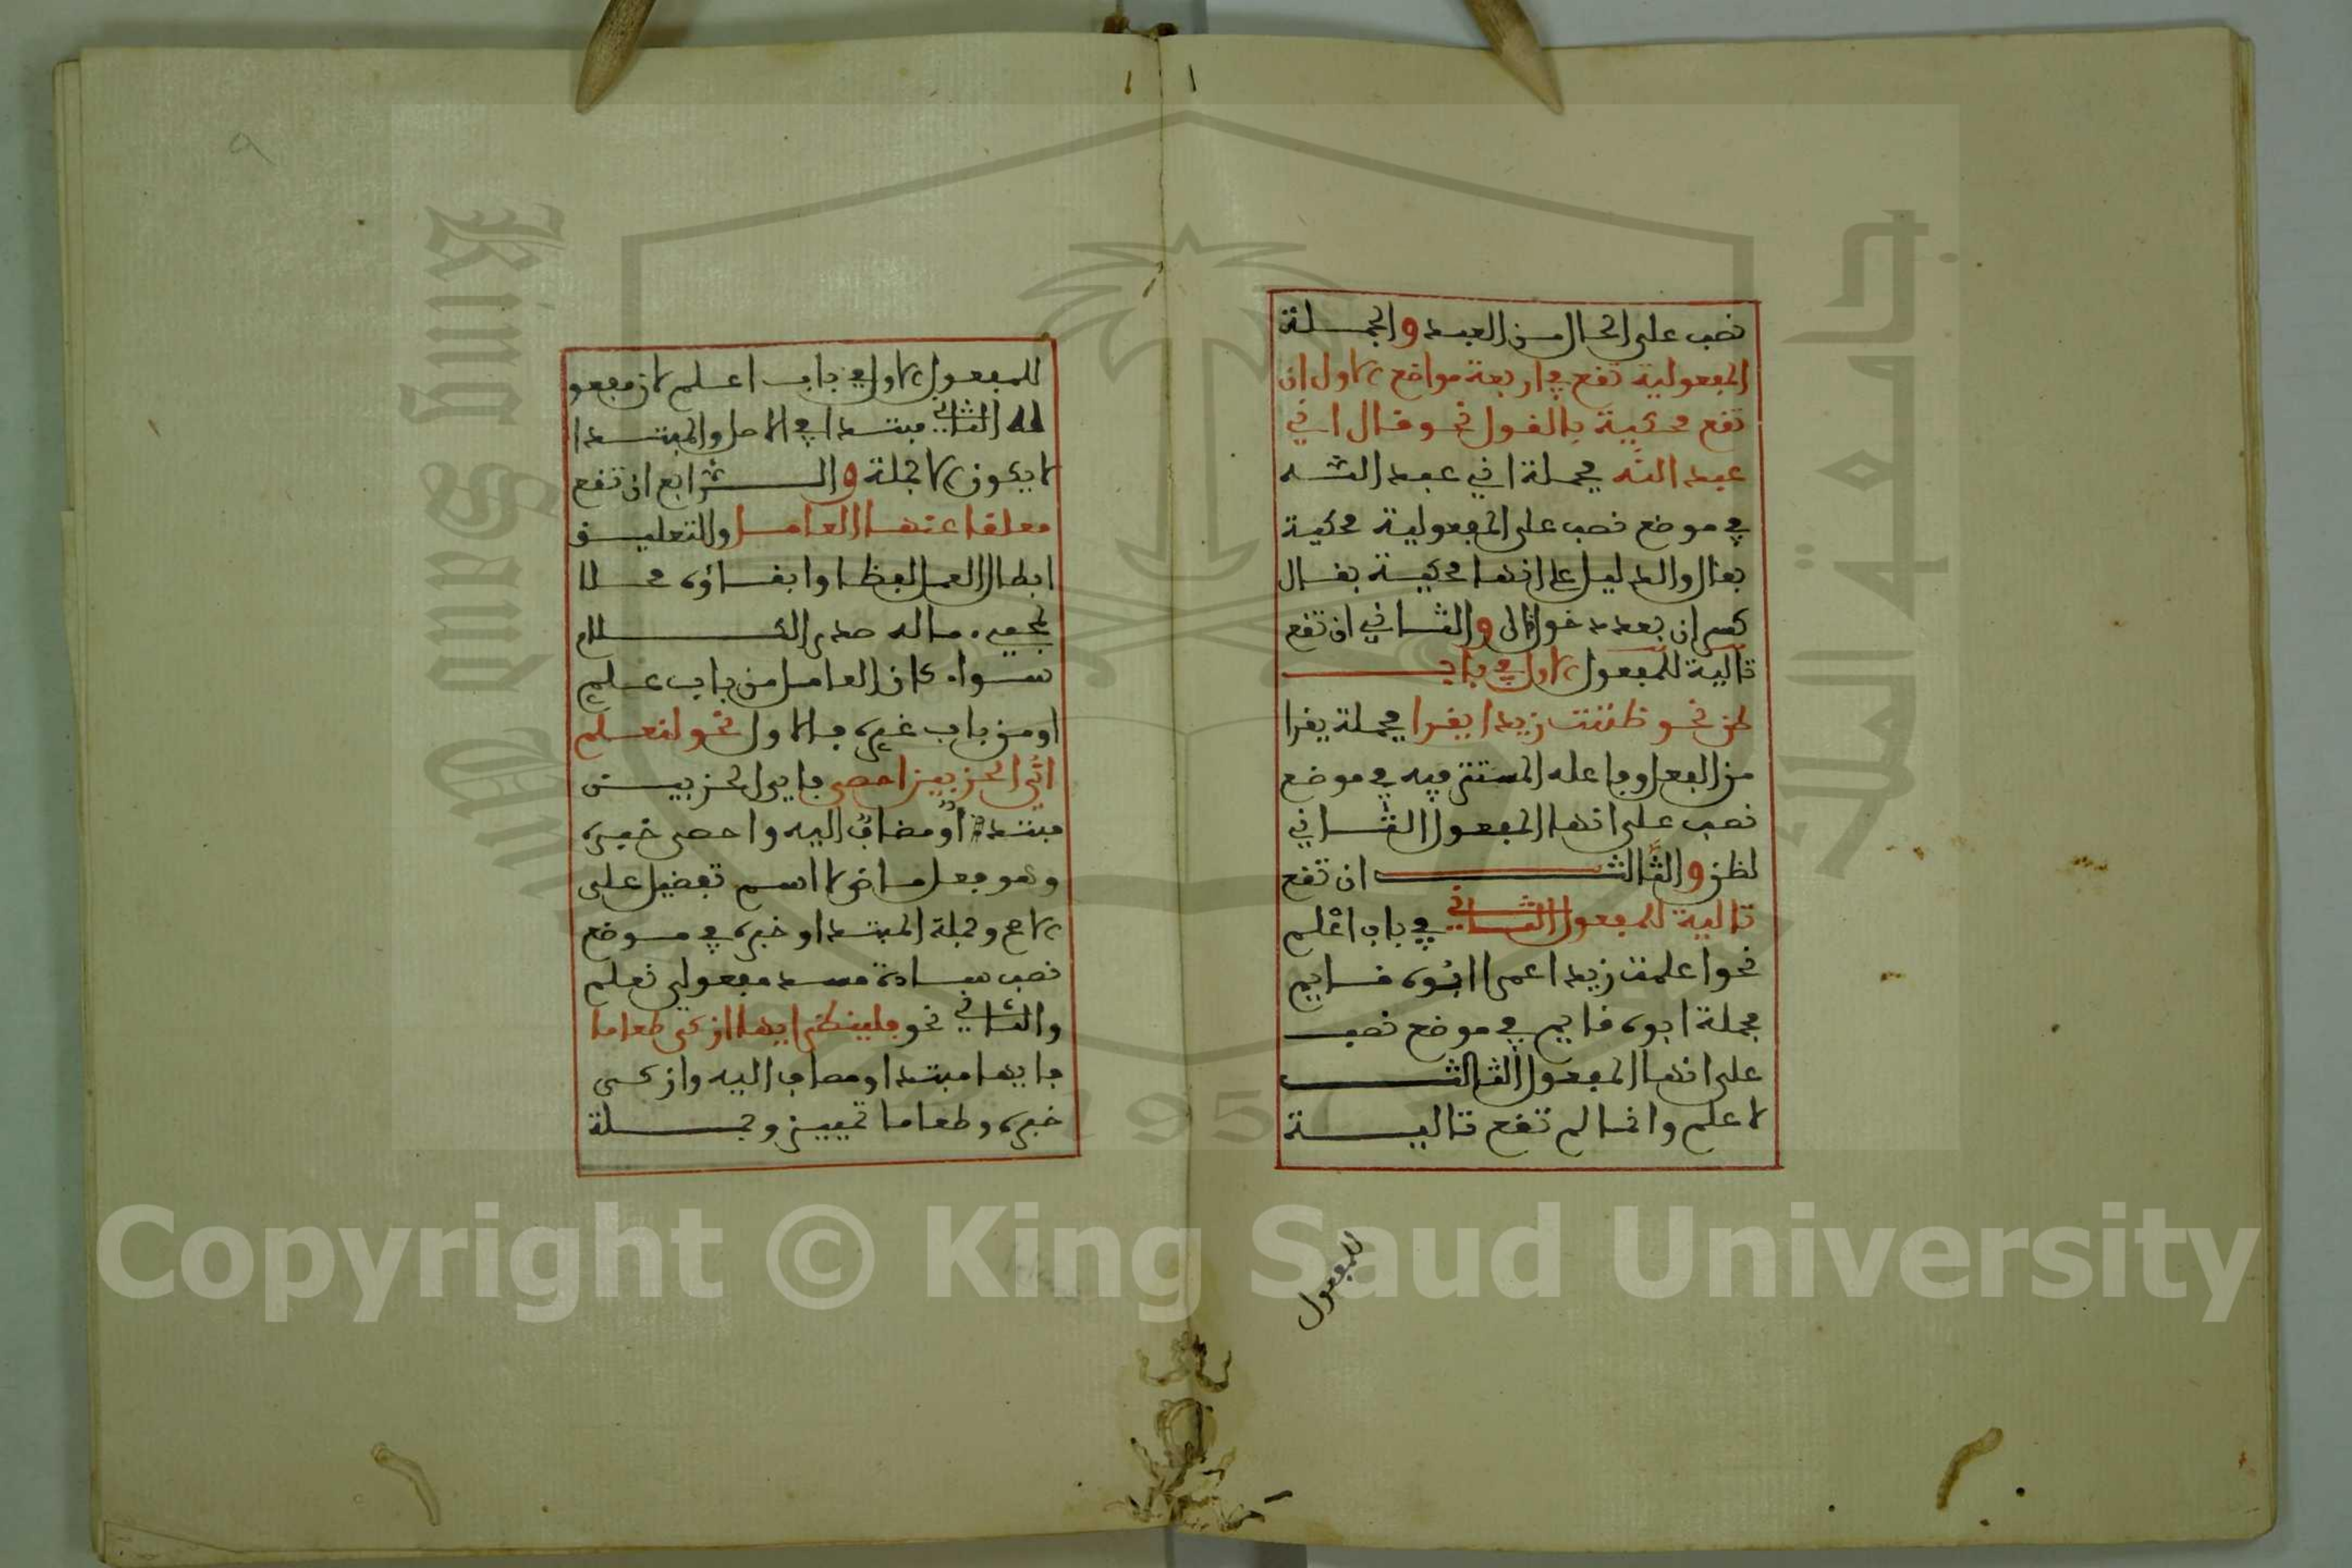 نصب على الحال من العبد والجملة
المفعولية تقع في اربعة مواضع الاول ان
تقع محكية بالقول نحو قال اني
عبد الله فجملة اني عبد الله
في موضع نصب على المفعولية محكية
بقال والدليل على انها محكية بقال
كسر ان بعد دخول قال والثاني ان تقع
تالية للمفعول الاول في باب
ظن نحو ظننت زيدا يقرا فجملة يقرا
من الفعل وفاعله المستتر فيه في موضع
نصب على انها المفعول الثاني
لظن والثالث ان تقع
تالية للمفعول الثاني في باب اعلم
نحو اعلمت زيدا عمرا ابوه قايم
فجملة ابوه قايم في موضع نصب
على انها المفعول الثالث
لاعلم وانما لم تقع تالية
للمفعول
للمفعول الاول في باب اعلم لان مفعو
له الثاني مبتدا في الاصل والمبتدا
لا يكون الا جملة والرابع ان تقع
معلقا عنها العامل والتعليق
ابطال العمل لفظا وابقاؤه محلا
لمجيء ماله صدر الكلام
سواء كان العامل من باب علم
او من باب غيره فالاول نحو لنعلم
اي الحزبين احصى فاي الحزبين
مبتدا ومضاف اليه واحصى خبره
وهو فعل ماض لا اسم تفضيل على
الاصح وجملة المبتدا وخبره في موضع
نصب سادة مسد مفعولي نعلم
والثاني نحو فلينظر ايها ازكى طعاما
فايها مبتدا ومضاف اليه وازكى
خبره وطعاما تمييز وجملة
Copyright © King Saud University
King Saud University
جامعة الملك
1957